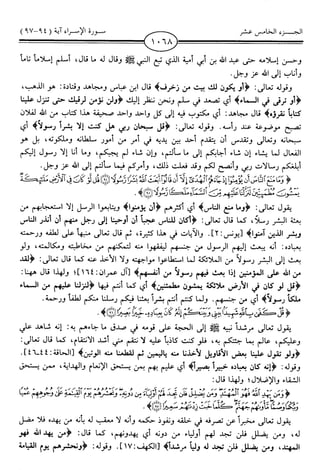 الجـزء الخامس عشر
١٠٦٨
سورة الإسراء آية (٩٤-٩٧)
وحسن إسلامه حتى عبد الله بن أبي أمية الذي تبع النبي ﷺ وقال له ما قال، أسلم إسلاماً تاماً
وأناب إلى الله عز وجل.
وقوله تعالى: ﴿أو يكون لك بيت من زخرف﴾ قال ابن عباس ومجاهد وقتادة: هو الذهب،
﴿أو ترقى في السماء﴾ أي تصعد في سلم ونحن ننظر إليك ﴿ولن نؤمن لرقيك حتى تنزل علينا
كتاباً نقرؤه﴾ قال مجاهد: أي مكتوب فيه إلى كل واحد واحد صحيفة هذا كتاب من الله لفلان
تصبح موضوعة عند رأسه. وقوله تعالى: ﴿قل سبحان ربي هل كنت إلا بشراً رسولاً﴾ أي
سبحانه وتعالى وتقدس أن يتقدم أحد بين يديه في أمر من أمور سلطانه وملكوته، بل هو
الفعال لما يشاء إن شاء أجابكم إلى ما سألتم، وإن شاء لم يجبكم، وما أنا إلا رسول إليكم
أبلغكم رسالات ربي وأنصح لكم وقد فعلت ذلك، وأمركم فيما سألتم إلى الله عز وجل.
﴿وَمَا مَنَعَ النَّاسَ أَن يُؤْمِنُوا إِذْ جَاءَهُمُ الْهُدَى إِلَّا أَن قَالُوا أَبَعَثَ اللَّهُ بَشَرًا رَّسُولًا قُل لَّوْ كَانَ فِي الْأَرْضِ مَلَائِكَةٌ
يَمْشُونَ مُطْمَئِنِّينَ لَنَزَّلْنَا عَلَيْهِم مِّنَ السَّمَاءِ مَلَكًا رَّسُولًا﴾
يقول تعالى: ﴿وما منع الناس﴾ أي أكثرهم ﴿أن يؤمنوا﴾ ويتابعوا الرسل إلا استعجابهم من
بعثة البشر رسلاً، كما قال تعالى: ﴿أكان للناس عجباً أن أوحينا إلى رجل منهم أن أنذر الناس
وبشر الذين آمنوا﴾ [يونس: ٢]. والآيات في هذا كثيرة، ثم قال تعالى منبهاً على لطفه ورحمته
بعباده: أنه يبعث إليهم الرسول من جنسهم ليفقهوا منه لتمكنهم من مخاطبته ومكالمته، ولو
بعث إلى البشر رسولاً من الملائكة لما استطاعوا مواجهته ولا الأخذ عنه كما قال تعالى: ﴿لقد
من الله على المؤمنين إذا بعث فيهم رسولاً من أنفسهم﴾ [آل عمران: ١٦٤]؛ ولهذا قال ههنا:
﴿قل لو كان في الأرض ملائكة يمشون مطمئنين﴾ أي كما أنتم فيها ﴿لنزلنا عليهم من السماء
ملكاً رسولاً﴾ أي من جنسهم. ولما كنتم أنتم بشراً بعثنا فيكم رسلنا منكم لطفاً ورحمة.
﴿قُلْ كَفَى بِاللَّهِ شَهِيدًا بَيْنِي وَبَيْنَكُمْ إِنَّهُ كَانَ بِعِبَادِهِ خَبِيرًا بَصِيرًا﴾
يقول تعالى مرشداً نبيه ﷺ إلى الحجة على قومه في صدق ما جاءهم به: إنه شاهد علي
وعليكم، عالم بما جئتكم به، فلو كنت كاذباً عليه لا نتقم مني أشد الانتقام، كما قال تعالى:
﴿ولو تقول علينا بعض الأقاويل لأخذنا منه باليمين ثم لقطعنا منه الوتين﴾ [الحاقة: ٤٤-٤٦].
وقوله: ﴿إنه كان بعباده خبيراً بصيراً﴾ أي عليم بهم بمن يستحق الإنعام والهداية، ممن يستحق
الشقاء والإضلال؛ ولهذا قال:
﴿وَمَن يَهْدِ اللَّهُ فَهُوَ الْمُهْتَدِ وَمَن يُضْلِلْ فَلَن تَجِدَ لَهُمْ أَوْلِيَاءَ مِن دُونِهِ وَنَحْشُرُهُمْ يَوْمَ الْقِيَامَةِ عَلَى وُجُوهِهِمْ عُمْيًا
وَبُكْمًا وَصُمًّا مَّأْوَاهُمْ جَهَنَّمُ كُلَّمَا خَبَتْ زِدْنَاهُمْ سَعِيرًا﴾
يقول تعالى مخبراً عن تصرفه في خلقه ونفوذ حكمه وأنه لا معقب له بأنه من يهده فلا مضل
له، ومن يضلل فلن تجد لهم أولياء من دونه أي يهدونهم، كما قال: ﴿من يهد الله فهو
المهتد، ومن يضلل فلن تجد له ولياً مرشداً﴾ [الكهف: ١٧]. وقوله: ﴿ونحشرهم يوم القيامة